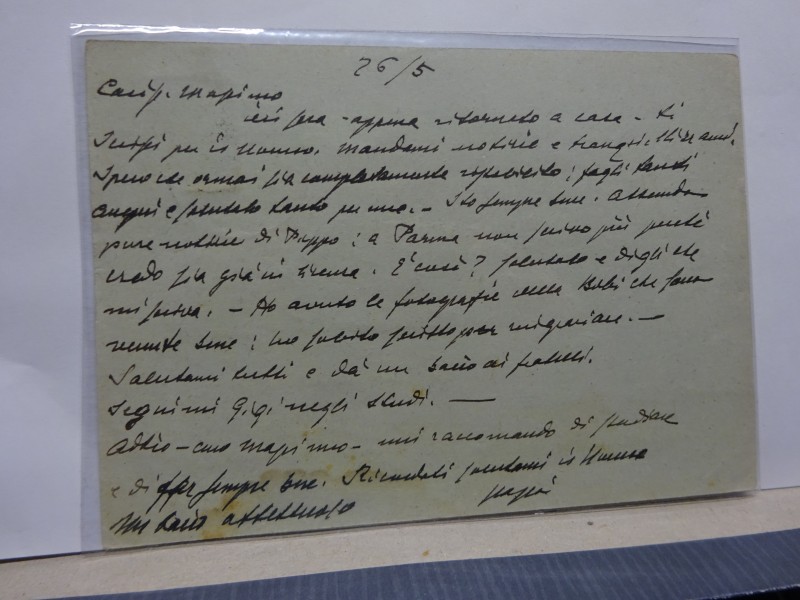 26/5
Cariss. Massimo
ieri sera - appena ritornato a casa - ti
scrissi per il Nonno. Mandami notizie e
Spero che ormai sia completamente ristabilito; fagli tanti
auguri e salutalo tanto per me. - Sto sempre bene. Attendo
pure notizie di Peppo: a Parma non scrivo più perché
credo sia già in licenza. È così? Salutalo e digli che
mi scriva. - Ho avuto le fotografie della Bibi che sono
venute bene: ho subito scritto per ringraziare. -
Salutami tutti e dà un bacio ai fratelli.
Seguimi Gigi negli studi. -
Addio - caro Massimo - mi raccomando di studiare
e di far sempre bene. Ricordati salutami il Nonno
Un bacio affettuoso
papà